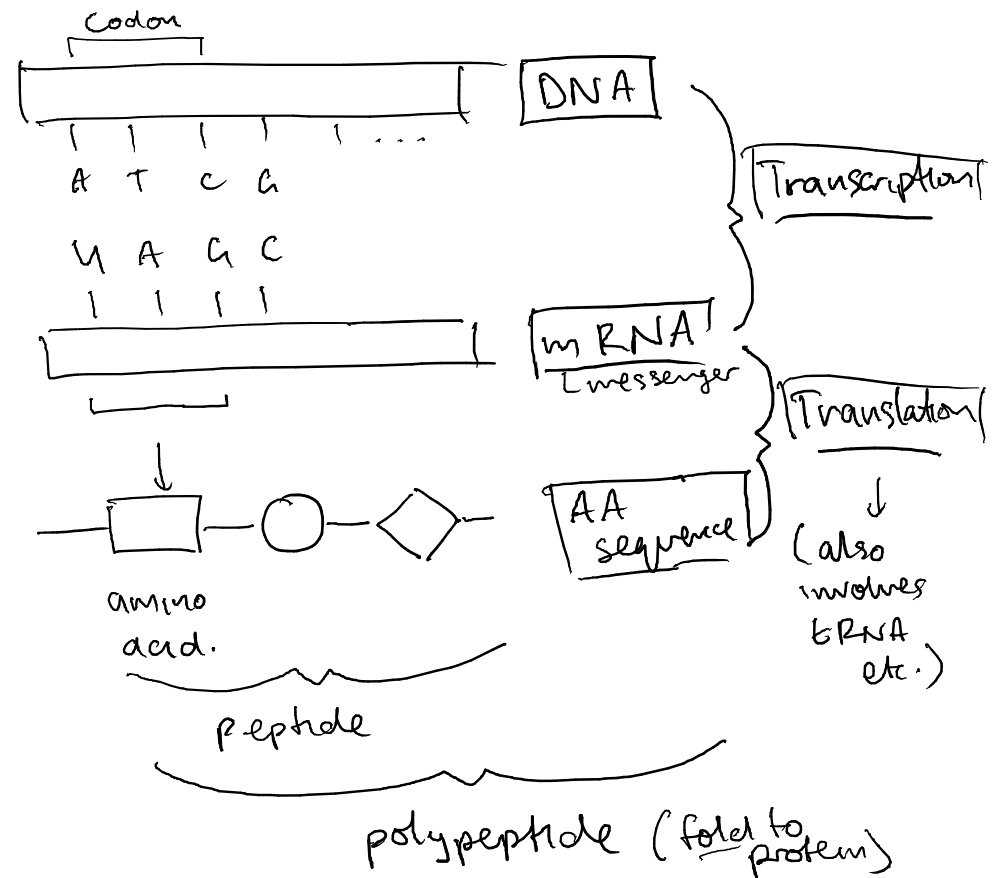 Codon
DNA
A T C G
Transcription
U A G C
mRNA
messenger
Translation
AA
sequence
(also
involves
tRNA
etc.)
amino
acid.
peptide
polypeptide (fold to
protein)